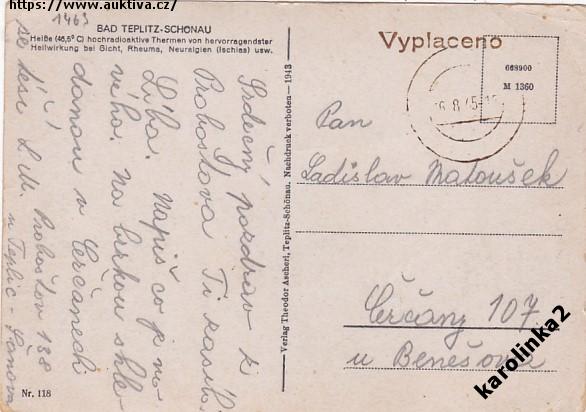 https://www.auktiva.cz/
1463
BAD TEPLITZ-SCHÖNAU
Heiße (46,5° C) hochradioaktive Thermen von hervorragendster
Heilwirkung bei Gicht, Rheuma, Neuralgien (Ischias) usw.
Srdečný pozdrav ki
Probostova Ti
Líba. Napiš co je no-
vého. Na brzkou shle-
danou v Čerčanech
se těší L.M. Proboštov 138
u Teplic-Šanova
Nr. 118
Verlag Theodor Ascherl, Teplitz-Schönau. Nachdruck verboten — 1943
Vyplaceno
668900
M 1360
6.8.45
Pan
Ladislav Matoušek
Čerčany 107
u Benešova
karolinka2